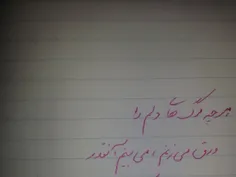 هرچه برگ‌ها دلم را
ورق می‌زنم، می‌بینم آنقدر